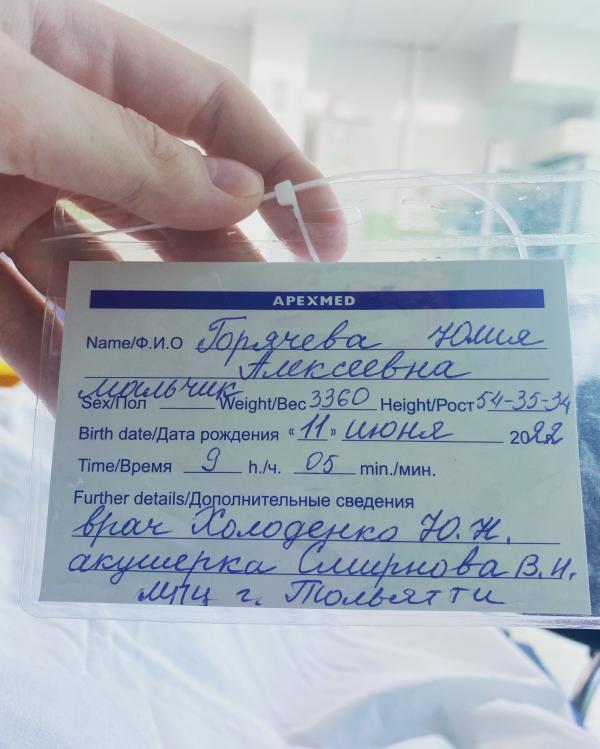 APEXMED
Name/Ф.И.О Горячева Юлия
Алексеевна
мальчик
Sex/Пол Weight/Вес 3360 Height/Рост 54-35-34
Birth date/Дата рождения «11» июня 2022
Time/Время 9 h./ч. 05 min./мин.
Further details/Дополнительные сведения
врач Холоденко Ю.Н.
акушерка Смирнова В.И.
МПЦ г. Тольятти